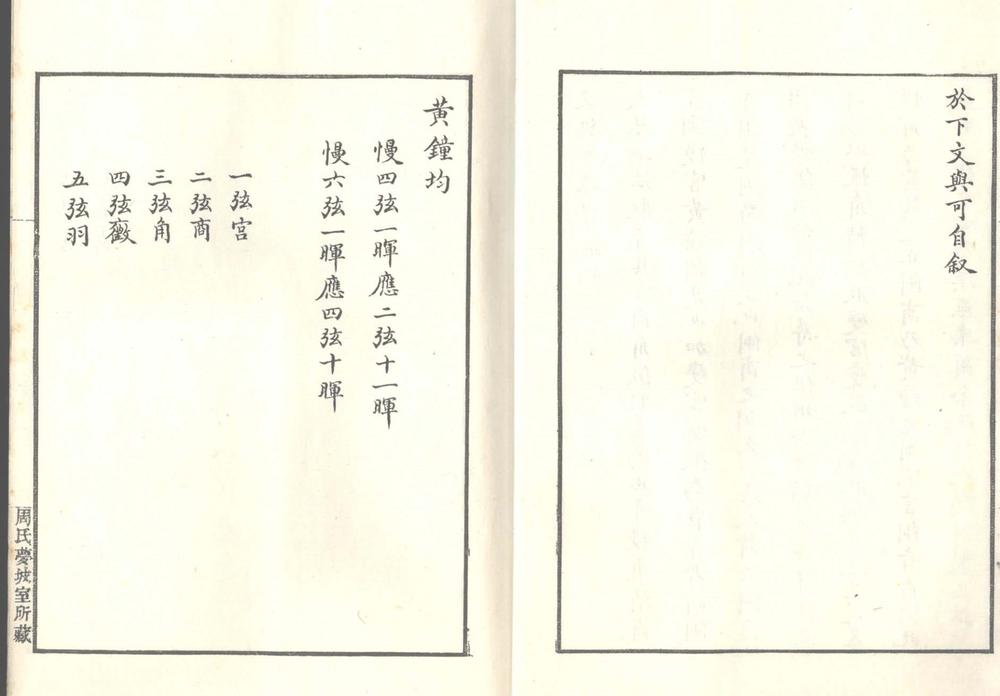 於下文與可自叙
黃鐘均
慢四弦一暉應二弦十一暉
慢六弦一暉應四弦十暉
一弦宫
二弦商
三弦角
四弦徵
五弦羽
周氏夢坡室所藏